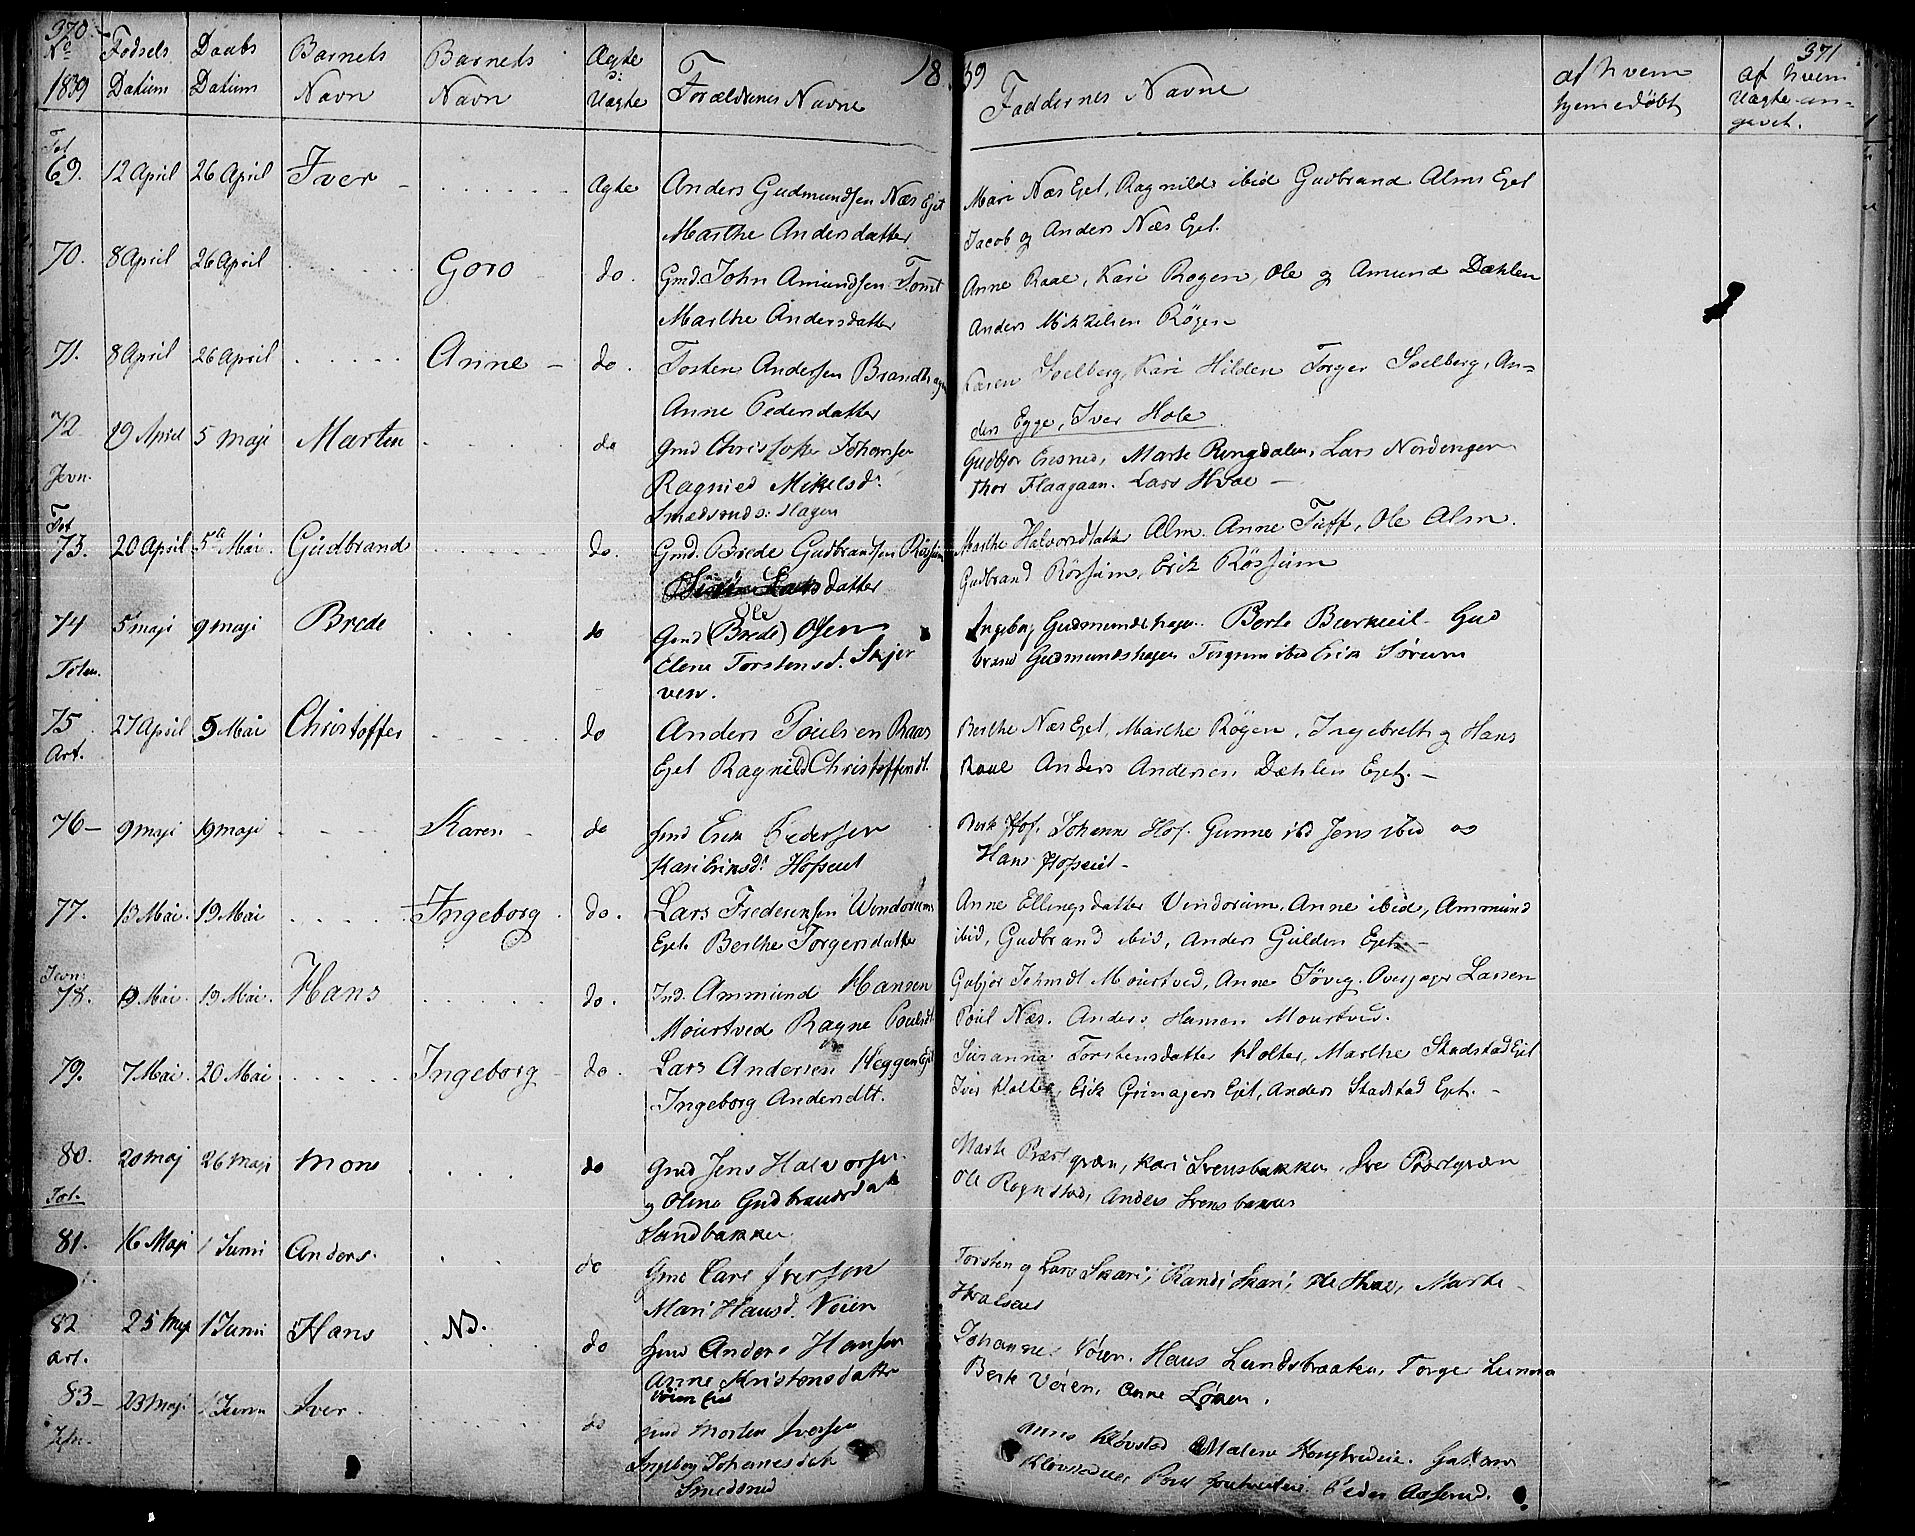 370.
No Fødsels Daabs Barnets Barnets Ægte Forældrenes Navne 18
1839 Datum Datium Navn Navn Uægte
39 Faddernes Navne af hvem hjemedøbt 371 af hvem Uægte angivet.
Tot
69. 12 April 26 April Iver Ægte Anders Gudmundsen Næs Ejet
Marthe Andersdatter
Mari Næs Ejet, Ragnild ibid Gudbrand Alms Ejet
Jacob og Anders Næs Ejet.
70. 8 April 26 April Goro do. Gmd. John Amundsen Tomt
Marthe Andersdatter
Anne Raae, Kari Rogen, Ole og Amund Dæhlen
Anders Mikkelsen Røgen
71. 8 April 26 April Anne do. Tosten Andersen Brandh
Anne Pedersdatter
Karen Sselberg, Kari Hilden Torger Sselberg, An-
ders Egge, Iver Hole
72 19 April 5 maji Martin do Gmd Christofer Johansen
Jevn. Ragnied Mikelsd.
Smedsruds: Hagen
Gudbjor Marte Ringdalen, Lars Nordengen
Thor Flaagaan. Lars Hvae
Tot
73. 20 April 5 Mai. Gudbrand do. Gmd. Brede Gudbrandsen Røssum
datter
Marthe Halvorsdatter Alm. Anne Tuff, Ole Alm.
Gudbrand Røssum, Erik Røssum
74 5 maji 9 maji Brede do Gmd (Brede) Ole Olsen
Toten. Elene Torstensd. Skjer
ven.
Ingeborg Gudmundshagen. Berte Gud
brand Gudmundshagen Torgrim ibid Erik Sørum
75 27 April 5 Mai Christoffer do Anders Poulsen Raas
Art. Ejet Ragnild Christoffersdt.
Berthe Næs Ejet, Marthe Røgen, Ingebrett og Hans
Raae Anders Andersen Dæhlen Ejet.
76 9 maji 19 maji Karen do Erik Pedersen
Kari Eriksd. Hofseiet
Berte Hof. Johanne Hof. Gunne ibd Jens ibid og
Hans Hofseiet
77. 13 Mai. 19 Mai Ingeborg do. Lars Frederiksen Windorums
Ejet. Berthe Torgersdatter
Anne Ellingsdatter Vindorum, Anne ibid, Ammund
ibid, Gudbrand ibid, Anders Gulden Ejet.
Jevn:
78. 9 Mai. 19 Mai. Hans do. Ind. Ammund Hansen
Mourtved Ragne Poulsdt
Gubjor Schmidt Mourtved, Anne Tøvig, Overjæger Larsen
Poul Næs. Anders Hansen Mourtved.
79. 7 Mai. 20 Mai Ingeborg do. Lars Andersen Heggen Ejet
Ingeborg Andersdtt.
Susanna Torstensdatter Holter, Marthe Stadstad Ejet
Iver Holter, Erik Grinagers Ejet, Anders Stadstad Ejet.
80. 20 maj 26 maji Mons do Gmd Jens Halvorsen
Tot. og Olene Gudbrandsdat
Sandbakken
Marte Præstgræn, Kari Svensbakken, Ive Præstgræn
Ole Rognstad, Anders Svensbakken
81. 16 Maji 1 Juni Anders. do Gmd Lars Iversen
Mari Hansd. Voien
Torsten og Lars Skari, Randi Skari, Ole Hvae, Marte
Hvalseiet
82 25 maj 1 Juni Hans Nd. do Anders Hansen
Art. Anne Kristensdatter
Voien Eiet
Johanne Voien. Hans Lundsbraaten, Torger Lunna
Berte Veien, Anne Lønen.
83 23 maj 1 Juni Iver. do Morten Iversen
Ingeborg Johannesdtr
Smedsrud
Anne Kløvstad Malene Gullau
Poul Peder Aaserud.